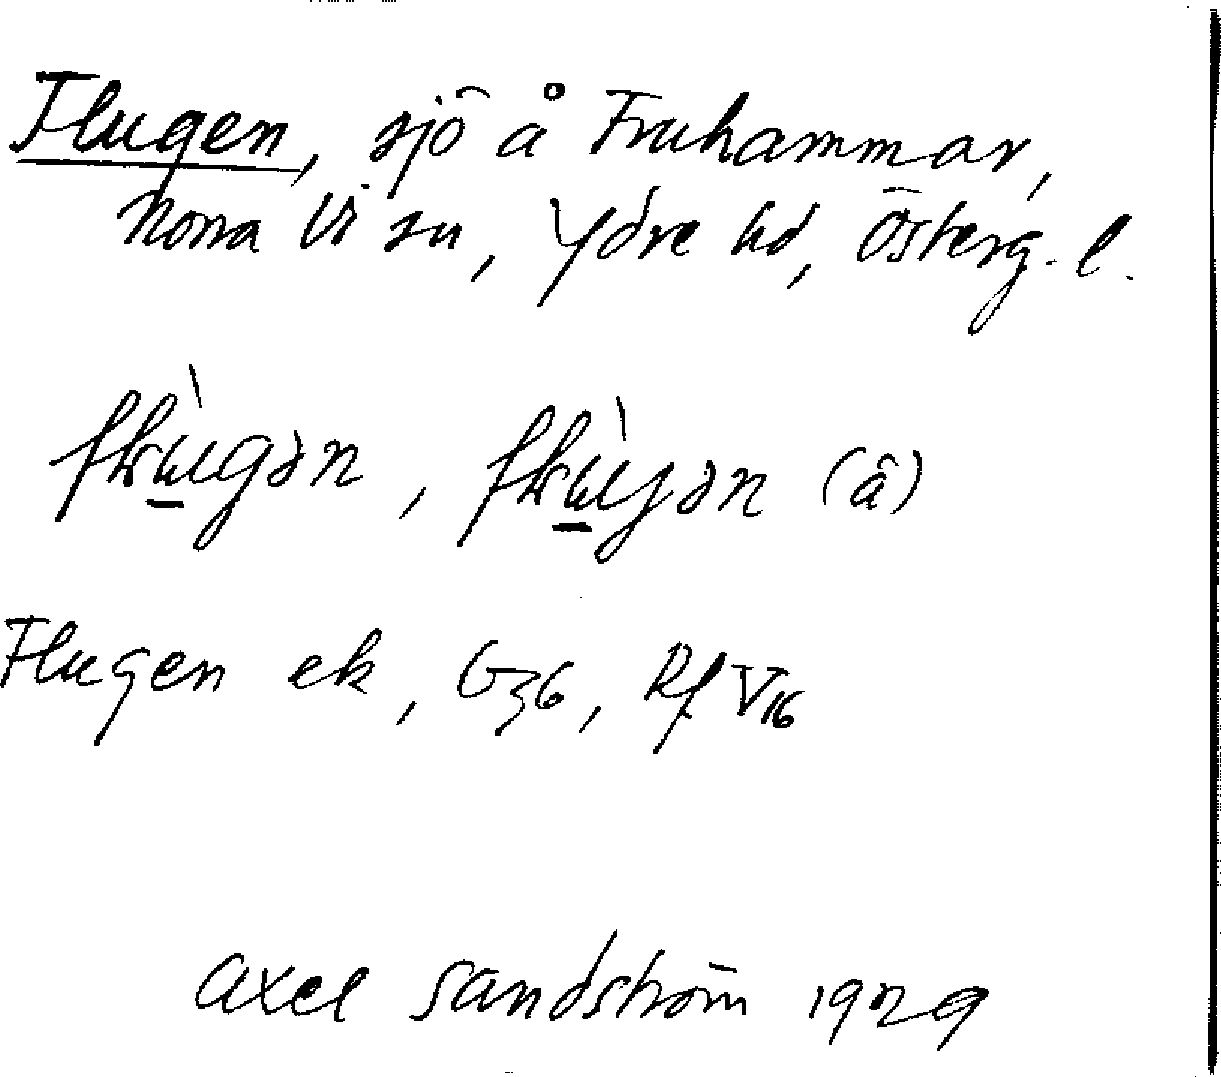 Flugen, sjö å Fruhammar,
Norra Vi sn, Ydre hd, Österg. l.
flɯ̀gən, flɯ̀gən (â)
Flugen ek, G36, Rf V16
Axel Sandström 1929